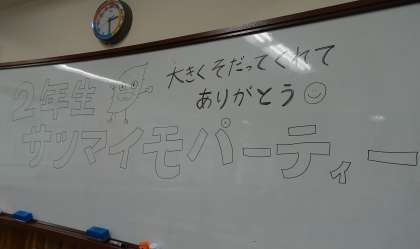 大きくそだってくれて
ありがとう
2年生
サツマイモパーティー